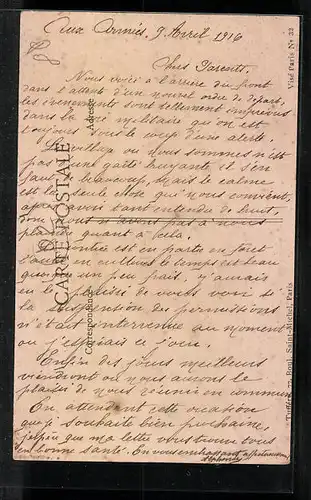 Aux Armées, 9 Avril 1916
Chers Parents
Nous voici à l'arrière du front
dans l'attente d'un nouvel ordre de départ,
les évènements sont tellement imprévus
dans la vie militaire qu'on est
toujours sous le coup d'une alerte.
où nous sommes n'est
pas d'une gaîté bruyante il s'en
faut de beaucoup, mais le calme
est la seule chose qui nous convient,
après avoir tant entendu de bruit,
donc nous n'avons pas à nous
plaindre quant à cela.
La contrée est en partie en forêt
l'autre en culture le temps est beau
quoique un peu frais, j'aurais
eu le plaisir de vous voir si
la suspension des permissions
n'était intervenue au moment
où j'espérais ce jour.
Enfin des jours meilleurs
viendront où nous aurons le
plaisir de nous réunir en commun
En attendant cette occasion
que je souhaite bien prochaine,
j'espère que ma lettre vous trouve tous
en bonne santé. En vous embrassant
CARTE POSTALE
Correspondance
Adresse
Visé Paris No 32
75, Boul. Saint-Michel, Paris